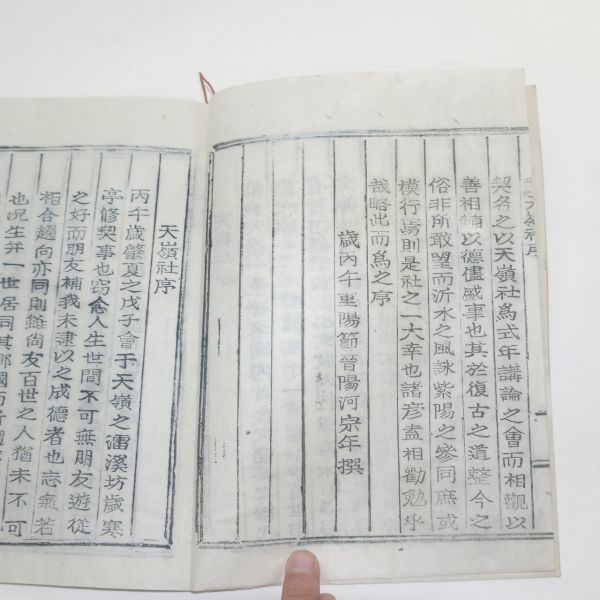 天嶺社序
契名之以天嶺社爲式年講論之會而相觀以
善相輔以德儘盛事也其於復古之道整今之
俗非所敢望而沂水之風詠紫陽之參同庶或
模行焉則是社之一大幸也諸彦盍相勸勉乎
哉略此而爲之序
歲丙午重陽節晉陽河宗年撰
天嶺社序
丙午歲肇夏之戊子會于天嶺之濡溪坊歲寒
亭修契事也窃念人生世間不可無朋友遊從
之好而朋友補我未逮以之成德者也志氣若
相合趨向亦同則雖尙友百世之人猶未不可
也况生幷一世居同其鄕